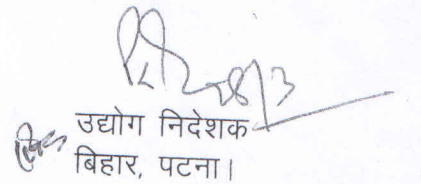 28/3
उद्योग निदेशक
बिहार, पटना।